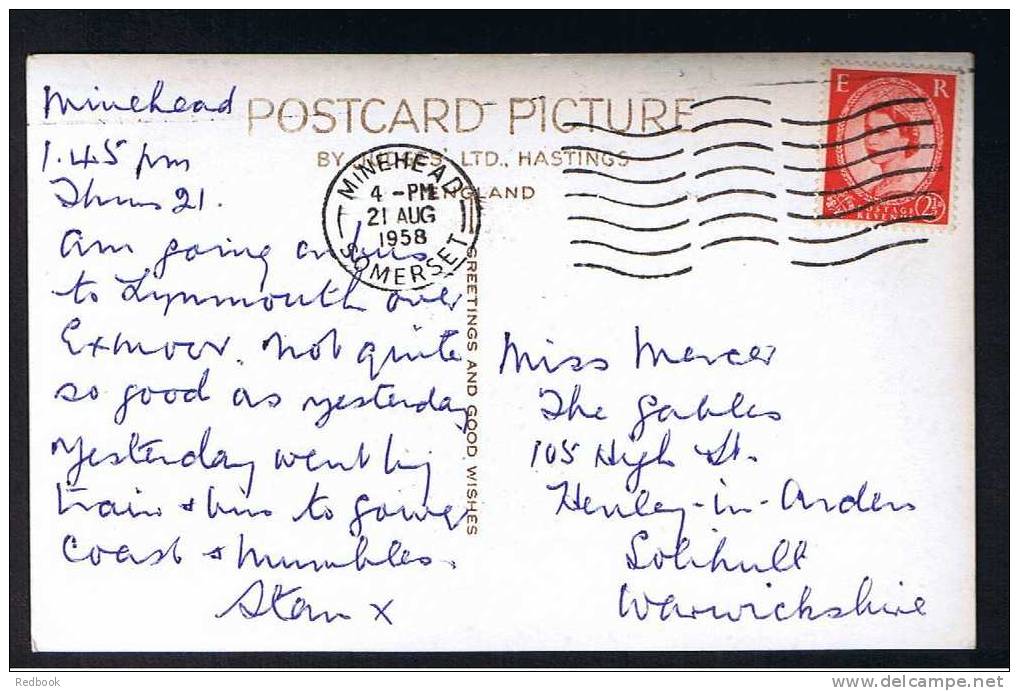 Minehead
1.45 pm
Thurs 21.
am going on bus
to Lynmouth over
Exmoor. Not quite
so good as yesterday
Yesterday went by
train & bus to Gower
Coast & Mumbles.
Stan x
POSTCARD PICTURE
BY JUDGES' LTD., HASTINGS
ENGLAND
MINEHEAD
4 - PM
21 AUG
1958
SOMERSET
GREETINGS AND GOOD WISHES
E R
POSTAGE
REVENUE
2½
Miss Mercer
The Gables
105 High St.
Henley-in-Arden
Solihull
Warwickshire
Redbook
www.delcampe.net